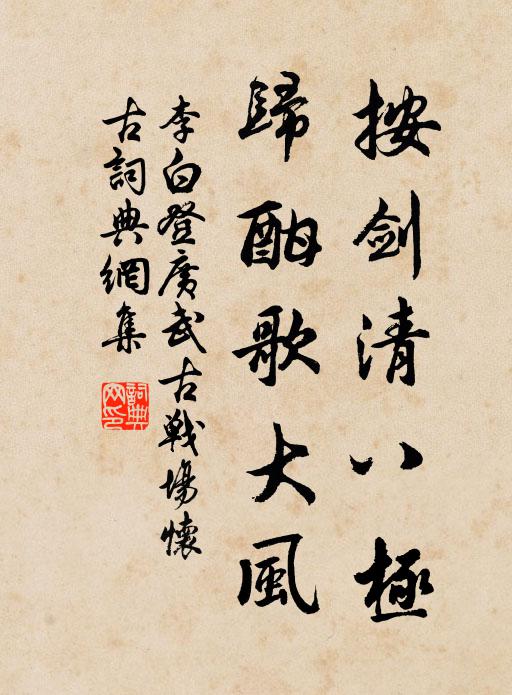 按劍清八極
歸酣歌大風
李白登廣武古戰場懷
古詞典網集
詞典
網印